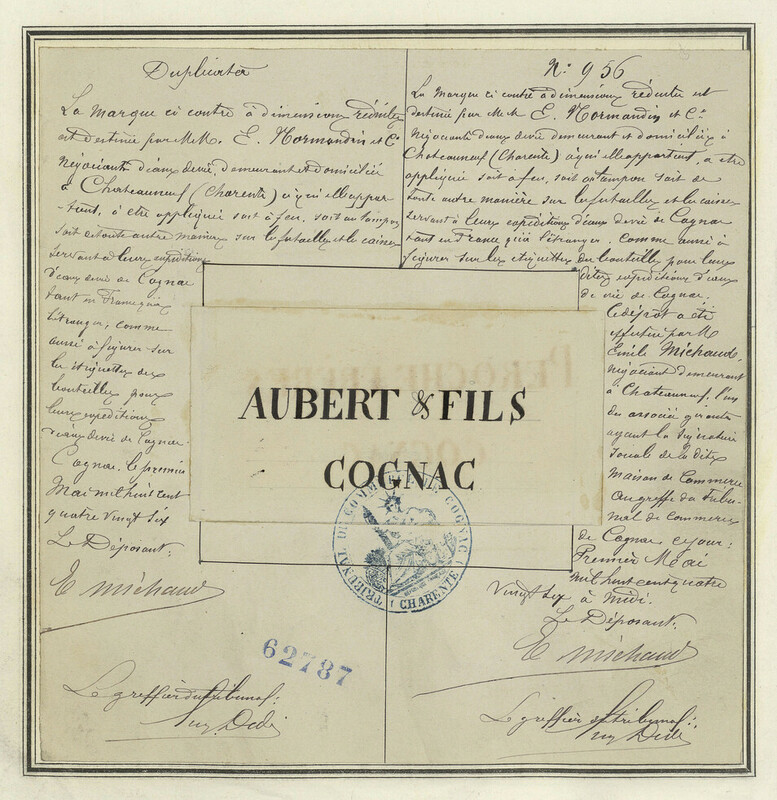 Duplicata
La marque ci contre à dimensions réduites
est destinée par M.M. E. Normandin et Cie
négociants d'eaux de vie, demeurant et domiciliés
à Chateauneuf (Charente) à qui elle appar-
tient, à être appliquée soit à feu, soit au tampon
soit de toute autre manière sur les futailles et les caisses
servant à leurs expéditions
d'eaux de vie de Cognac
tant en France qu'à
l'étranger, comme
aussi à figurer sur
les étiquettes des
bouteilles pour
leurs expéditions
d'eaux de vie de Cognac.
Cognac, le premier
Mai mil huit cent
quatre vingt six
Le Déposant:
E Michaud
Le greffier du tribunal:
No 956
La marque ci contre à dimensions réduites est
destinée par M.M. E. Normandin et Cie
négociants d'eaux de vie demeurant et domiciliés à
Chateauneuf (Charente) à qui elle appartient, à être
appliquée soit à feu, soit au tampon soit de
toute autre manière sur les futailles et les caisses
servant à leurs expéditions d'eaux de vie de Cognac
tant en France qu'à l'étranger, comme aussi à
figurer sur les étiquettes des bouteilles pour leurs
dites expéditions d'eaux
de vie de Cognac.
Ce dépôt a été
effectué par M
Emile Michaud,
négociant demeurant
à Chateauneuf, l'un
des associés gérants
ayant la signature
sociale de la dite
maison de commerce
au greffe du Tribu-
nal de Commerce
de Cognac ce jour:
Premier Mai
mil huit cent quatre
vingt six à midi.
Le Déposant:
E Michaud
Le greffier du tribunal:
AUBERT & FILS
COGNAC
TRIBUNAL DE COMMERCE DE COGNAC
(CHARENTE)
62787